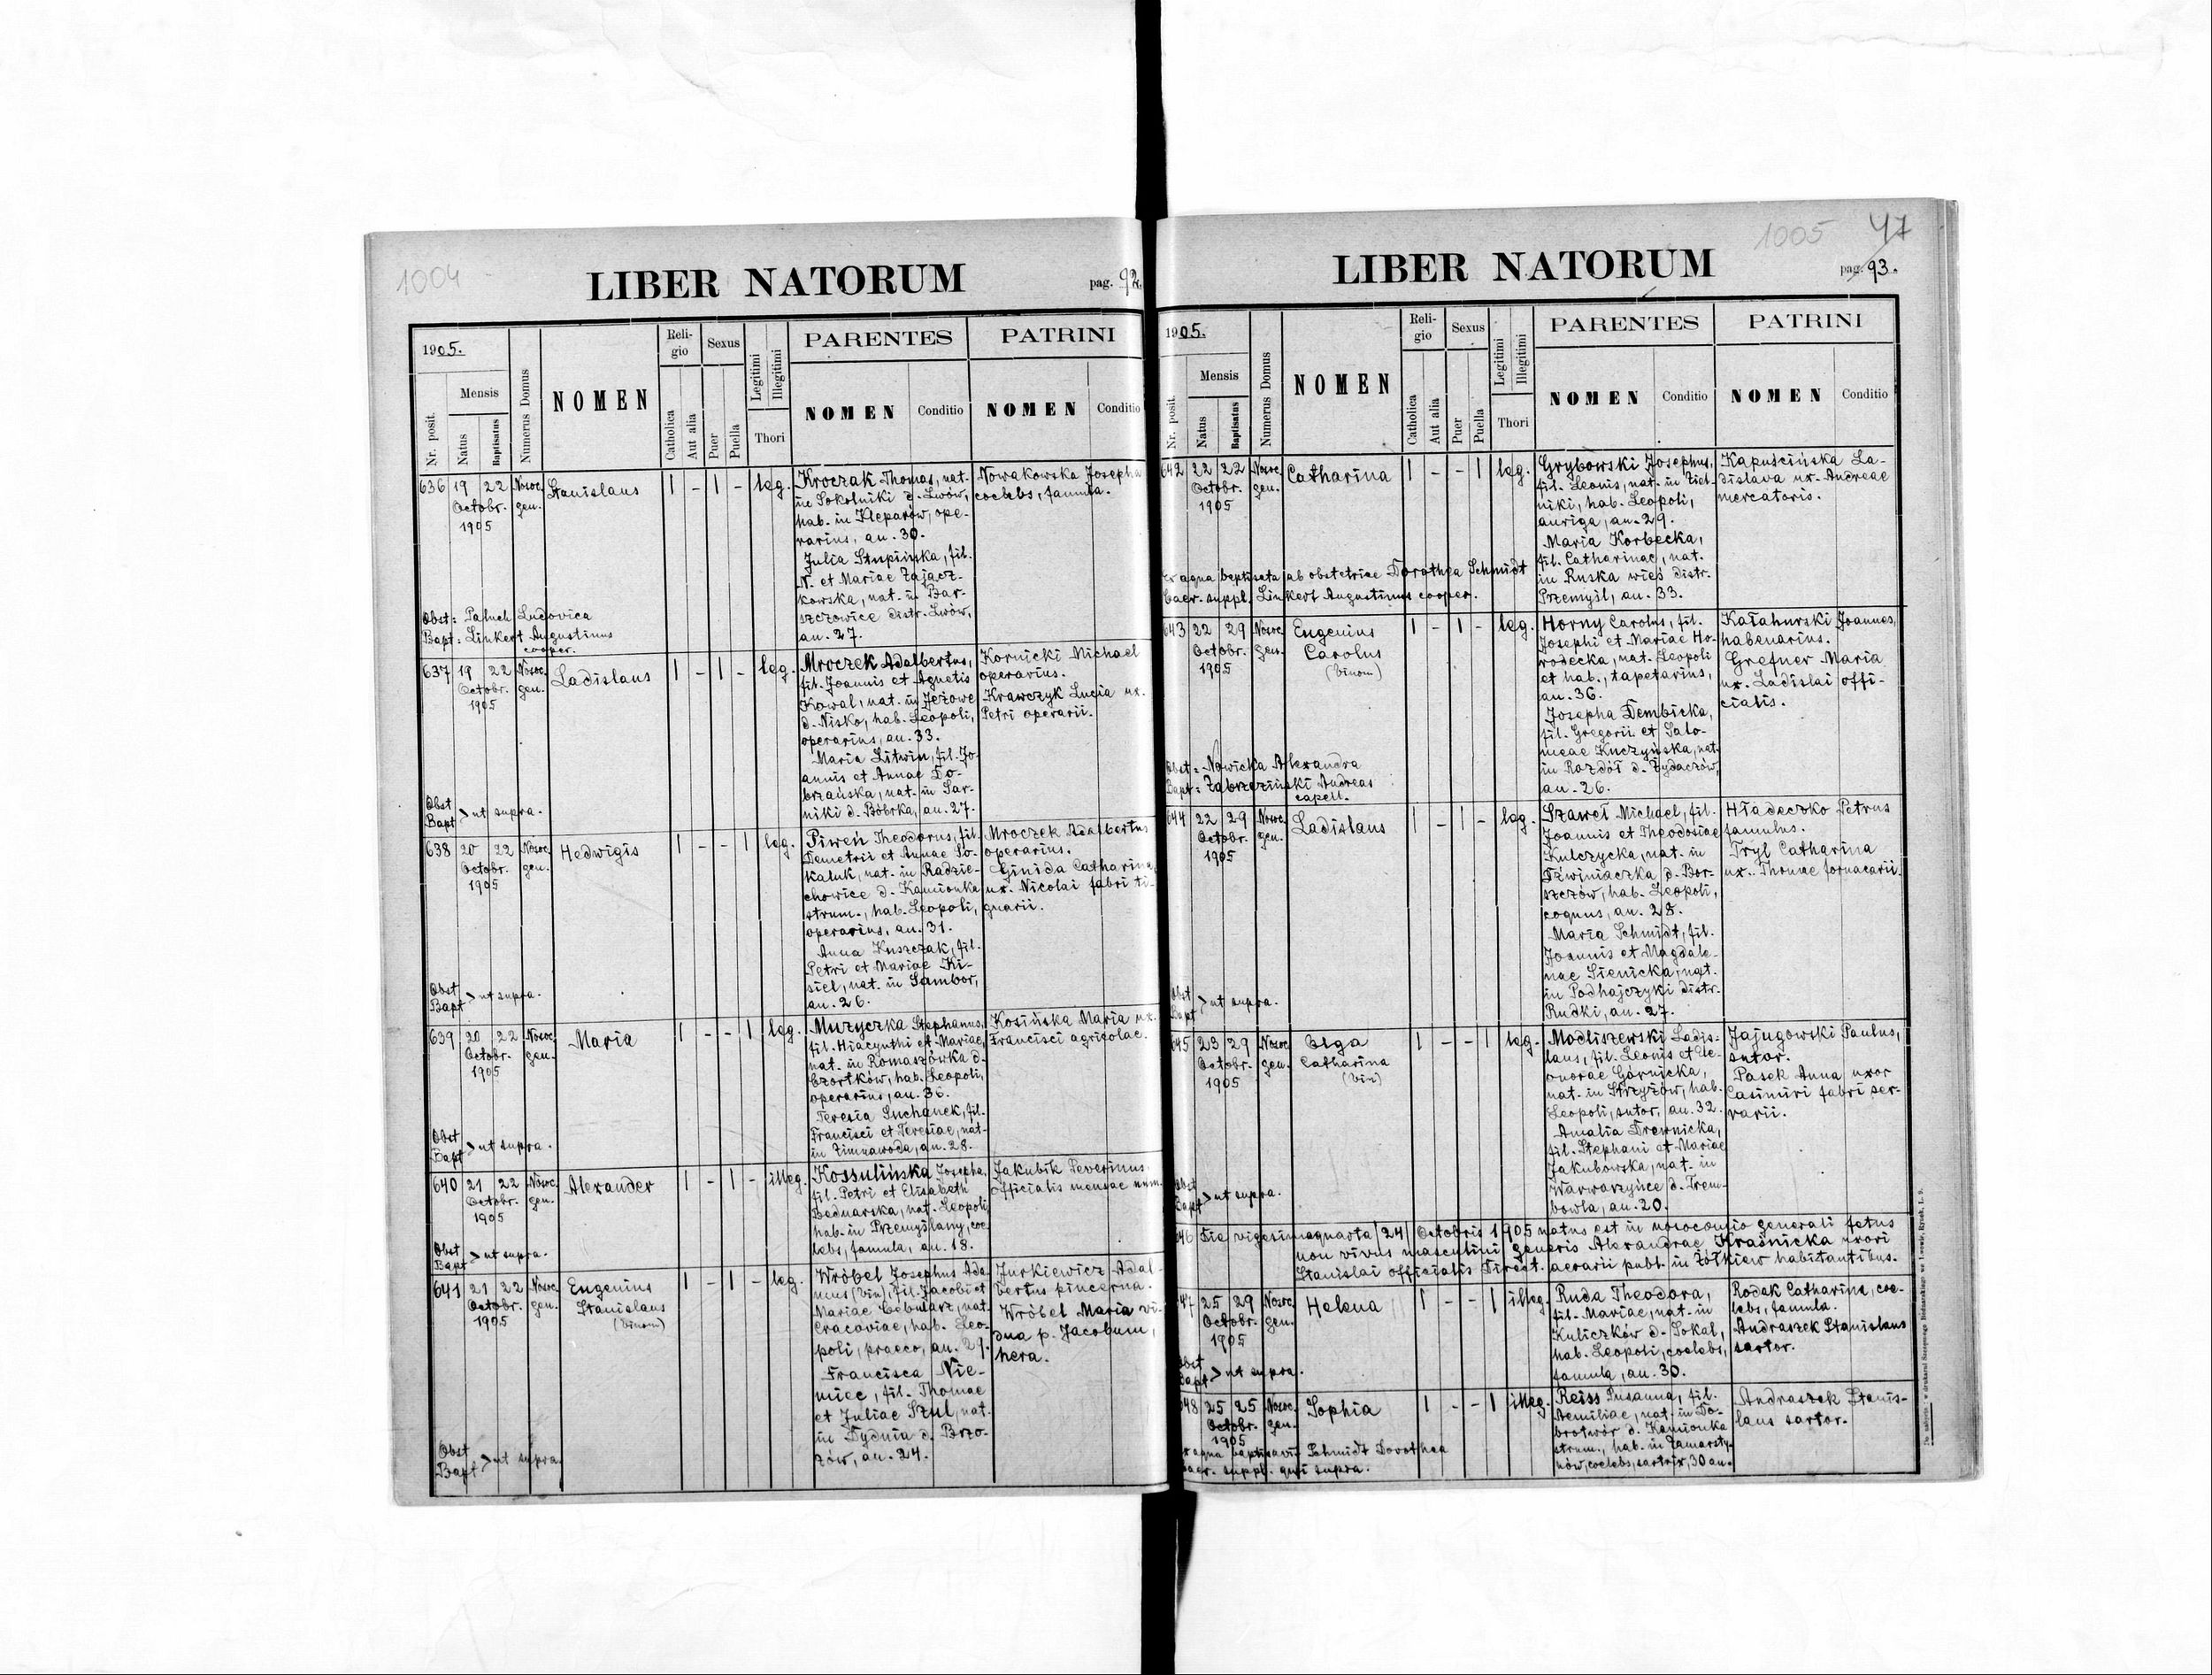 1004
LIBER NATORUM
pag. 92.
1905.
Nr. posit.
Mensis
Natus
Baptisatus
Numerus Domus
NOMEN
Reli-
gio
Catholica
Aut alia
Sexus
Puer
Puella
Legitimi
Illegitimi
Thori
PARENTES
NOMEN
Conditio
PATRINI
NOMEN
Conditio
636
19
22
Octobr.
1905
Nosoc.
gen.
Stanislaus
leg.
Kroczak Thomas, nat.
in Sokolniki d. Lwów,
hab. in Kleparów, ope-
rarius, an. 30.
Julia Stupińska, fil.
N. et Mariae Zajacz-
kowska, nat. in Bar-
szczowice distr. Lwów,
an. 27.
Nowakowska Josepha
coelebs, famula.
Obst: Paluch Ludovica
Bapt: Linkert Augustinus
cooper.
637
19
22
Octobr.
1905
Nosoc.
gen.
Ladislaus
leg.
Mroczek Adalbertus,
fil. Joannis et Agnetis
Kowal, nat. in Jeżowe
d. Nisko, hab. Leopoli,
operarius, an. 33.
Maria Litwin, fil. Jo-
annis et Annae Do-
brzańska, nat. in Sar-
niki d. Bóbrka, an. 27.
Kornicki Michael
operarius.
Krawczyk Lucia ux.
Petri operarii.
Obst
Bapt > ut supra.
638
20
22
Octobr.
1905
Nosoc.
gen.
Hedwigis
leg.
Piweń Theodorus, fil.
Demetrii et Annae So-
kaluk, nat. in Radzie-
chowice d. Kamionka
strum., hab. Leopoli,
operarius, an. 31.
Anna Kuszczak, fil.
Petri et Mariae Ki-
siel, nat. in Sambor,
an. 26.
Mroczek Adalbertus
operarius.
Ginida Catharina
ux. Nicolai fabri ti-
gnarii.
Obst
Bapt > ut supra.
639
20
22
Octobr.
1905
Nosoc.
gen.
Maria
leg.
Muzyczka Stephanus,
fil. Hiacynthi et Mariae,
nat. in Romaszówka d.
Czortków, hab. Leopoli,
operarius, an. 36.
Teresia Suchanek, fil.
Francisci et Teresiae, nat.
in Zimnawoda, an. 28.
Kosińska Maria ux.
Francisci agricolae.
Obst
Bapt > ut supra.
640
21
22
Octobr.
1905
Nosoc.
gen.
Alexander
illeg.
Kossulińska Josepha,
fil. Petri et Elisabeth
Bednarska, nat. Leopoli
hab. in Przemyślany, coe-
lebs, famula, an. 18.
Jakubik Severinus
officialis mensae num.
Obst
Bapt > ut supra.
641
21
22
Octobr.
1905
Nosoc.
gen.
Eugenius
Stanislaus
(binom)
leg.
Wróbel Josephus Ada-
mus (bin), fil. Jacobi et
Mariae Cebularz, nat.
Cracoviae, hab. Leo-
poli, praeco, an. 29.
Francisca Nie-
miec, fil. Thomae
et Juliae Szul, nat.
in Dydnia d. Brzo-
zów, an. 24.
Jurkiewicz Adal-
bertus pincerna.
Wróbel Maria vi-
dua p. Jacobum,
hera.
Obst
Bapt > ut supra.
1005
47
LIBER NATORUM
pag. 93.
1905.
Nr. posit.
Mensis
Natus
Baptisatus
Numerus Domus
NOMEN
Reli-
gio
Catholica
Aut alia
Sexus
Puer
Puella
Legitimi
Illegitimi
Thori
PARENTES
NOMEN
Conditio
PATRINI
NOMEN
Conditio
642
22
22
Octobr.
1905
Nosoc.
gen.
Catharina
leg.
Grybowski Josephus,
fil. Leonis, nat. in Ziel-
niki, hab. Leopoli,
auriga, an. 29.
Maria Korbecka,
fil. Catharinae, nat.
in Ruska wieś distr.
Przemyśl, an. 33.
Kapuścińska La-
dislava ux. Andreae
mercatoris.
ex aqua baptisata ab obstetrice Dorothea Schmidt
Caer. suppl. Linkert Augustinus cooper.
643
22
29
Octobr.
1905
Nosoc.
gen.
Eugenius
Carolus
(binom)
leg.
Horny Carolus, fil.
Josephi et Mariae Ho-
rodecka, nat. Leopoli
et hab., tapetarius,
an. 36.
Josepha Dembicka,
fil. Gregorii et Salo-
meae Kuczyńska, nat.
in Rozdół d. Żydaczów,
an. 26.
Kałahurski Joannes,
habenarius.
Grefner Maria
ux. Ladislai offi-
cialis.
Obst: Nowicka Alexandra
Bapt: Zabrzeziński Andreas
capell.
644
22
29
Octobr.
1905
Nosoc.
gen.
Ladislaus
leg.
Szaweł Michael, fil.
Joannis et Theodosiae
Kulczycka, nat. in
Dźwiniaczka d. Bor-
szczów, hab. Leopoli,
coquus, an. 28.
Maria Schmidt, fil.
Joannis et Magdale-
nae Sienicka, nat.
in Podhajczyki distr.
Rudki, an. 27.
Hładeczko Petrus
famulus.
Tryl Catharina
ux. Thomae fornacarii.
Obst
Bapt > ut supra.
645
23
29
Octobr.
1905
Nosoc.
gen.
Olga
Catharina
(bin)
leg.
Modliszewski Ladis-
laus, fil. Leonis et Ele-
onorae Górnicka,
nat. in Strzyżów, hab.
Leopoli, sutor, an. 32.
Amalia Drewnicka,
fil. Stephani et Mariae
Jakubowska, nat. in
Warwarzyńce d. Trem-
bowla, an. 20.
Jajugowski Paulus,
sutor.
Pasek Anna uxor
Casimiri fabri ser-
rarii.
Obst
Bapt > ut supra.
646 Die vigesima quarta (24) Octobris 1905 natus est in nosocomio generali fetus
non vivus masculini generis Alexandrae Kraśnicka uxori
Stanislai officialis Direct. aerarii publ. in Żółkiew habitantibus.
647
25
29
Octobr.
1905
Nosoc.
gen.
Helena
illeg.
Ruda Theodora,
fil. Mariae, nat. in
Kuliczków d. Sokal,
hab. Leopoli, coelebs,
famula, an. 30.
Rodak Catharina, coe-
lebs, famula.
Andraszek Stanislaus
sartor.
Obst
Bapt > ut supra.
648
25
25
Octobr.
1905
Nosoc.
gen.
Sophia
illeg.
Reiss Susanna, fil.
Aemiliae, nat. in Do-
brotwór d. Kamionka
strum., hab. in Zamarsty-
nów, coelebs, sartrix, 30 an.
Andraszek Stanis-
laus sartor.
ex aqua baptisavit Schmidt Dorothea
caer. suppl. qui supra.